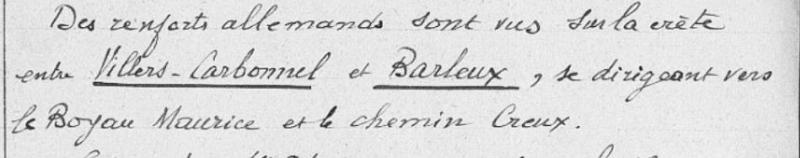 Des renforts allemands sont vus sur la crête
entre Villers-Carbonnel et Barleux, se dirigeant vers
le Boyau Maurice et le chemin Creux.